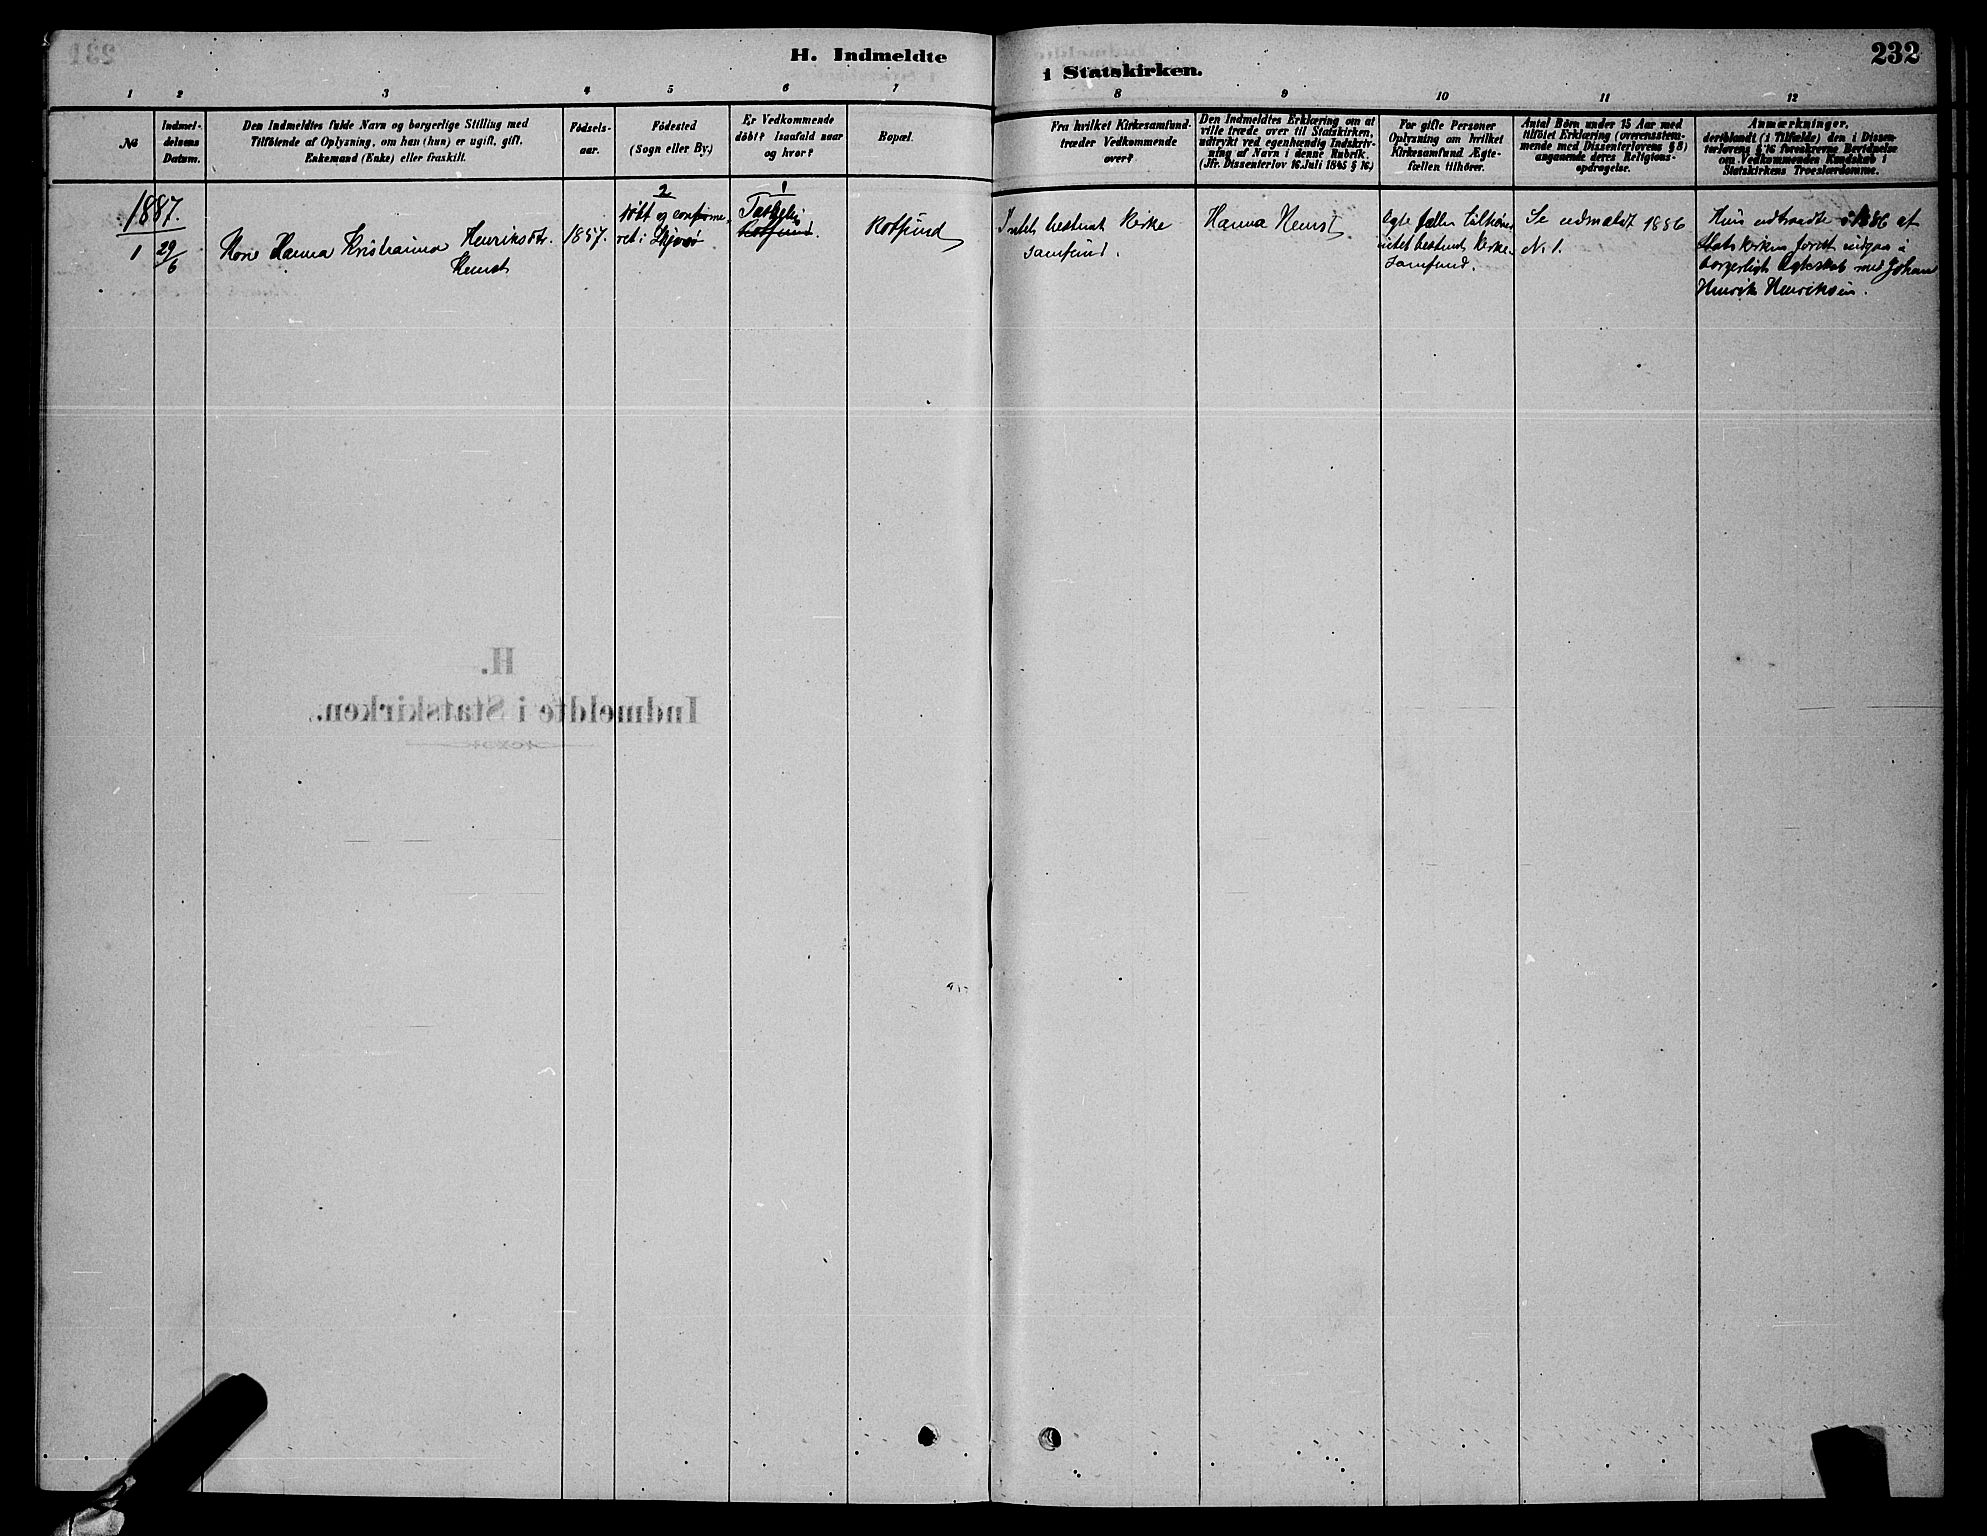 H. Indmeldte
i Statskirken.
232
1
2
3
4
5
6
7
8
9
10
11
12
№
Indmel-
delsens
Datum.
Den Indmeldtes fulde Navn og borgerlige Stilling med
Tilföiende af Oplysning, om han (hun) er ugift, gift,
Enkemand (Enke) eller fraskilt.
Födsels-
aar.
Födested
(Sogn eller By.)
Er Vedkommende
döbt? Isaafald naar
og hvor?
Bopæl.
Fra hvilket Kirkesamfund
træder Vedkommende
over?
Den Indmeldtes Erklæring om at
ville træde over til Statskirken,
udtrykt ved egenhændig Indskriv-
ning af Navn i denne Rubrik.
(Jfr. Dissenterlov 16 Juli 1845 § 16)
For gifte Personer
Oplysning om hvilket
Kirkesamfund Ægte-
fællen tilhörer.
Antal Børn under 15 Aar med
tilföiet Erklæring (overensstem-
mende med Dissenterlovens § 8)
angaaende deres Religions-
opdragelse.
Anmærkninger,
deriblandt (i Tilfælde) den i Dissen-
terlovens § 16 foreskrevne Bevidnelse
om Vedkommendes Kundskab i
Statskirkens Troeslærdomme.
1887.
1
29/6
Kone Hanna Kristianna Henriksdtr.
1857.
2
döbt og confirme-
ret i Skjervø
1
Rotsund.
Rotsund
Intet bestemt Kirke
samfund.
Hanna
Egtefællen tilhører
intet bestemt Kirke-
samfund.
Se udmeldt 1886
N. 1.
Hun udtraadte i 1886 af
Statskirken for at indgaa i
borgerligt Egteskab med Johan
Henrik Henriksen.
H.
Indmeldte i Statskirken.
231